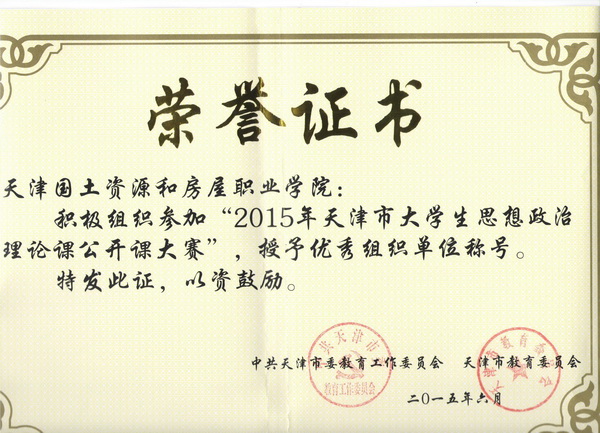 荣誉证书
天津国土资源和房屋职业学院：
积极组织参加“2015年天津市大学生思想政治
理论课公开课大赛”，授予优秀组织单位称号。
特发此证，以资鼓励。
中共天津市委教育工作委员会 天津市教育委员会
教育工作委员会
二〇一五年六月